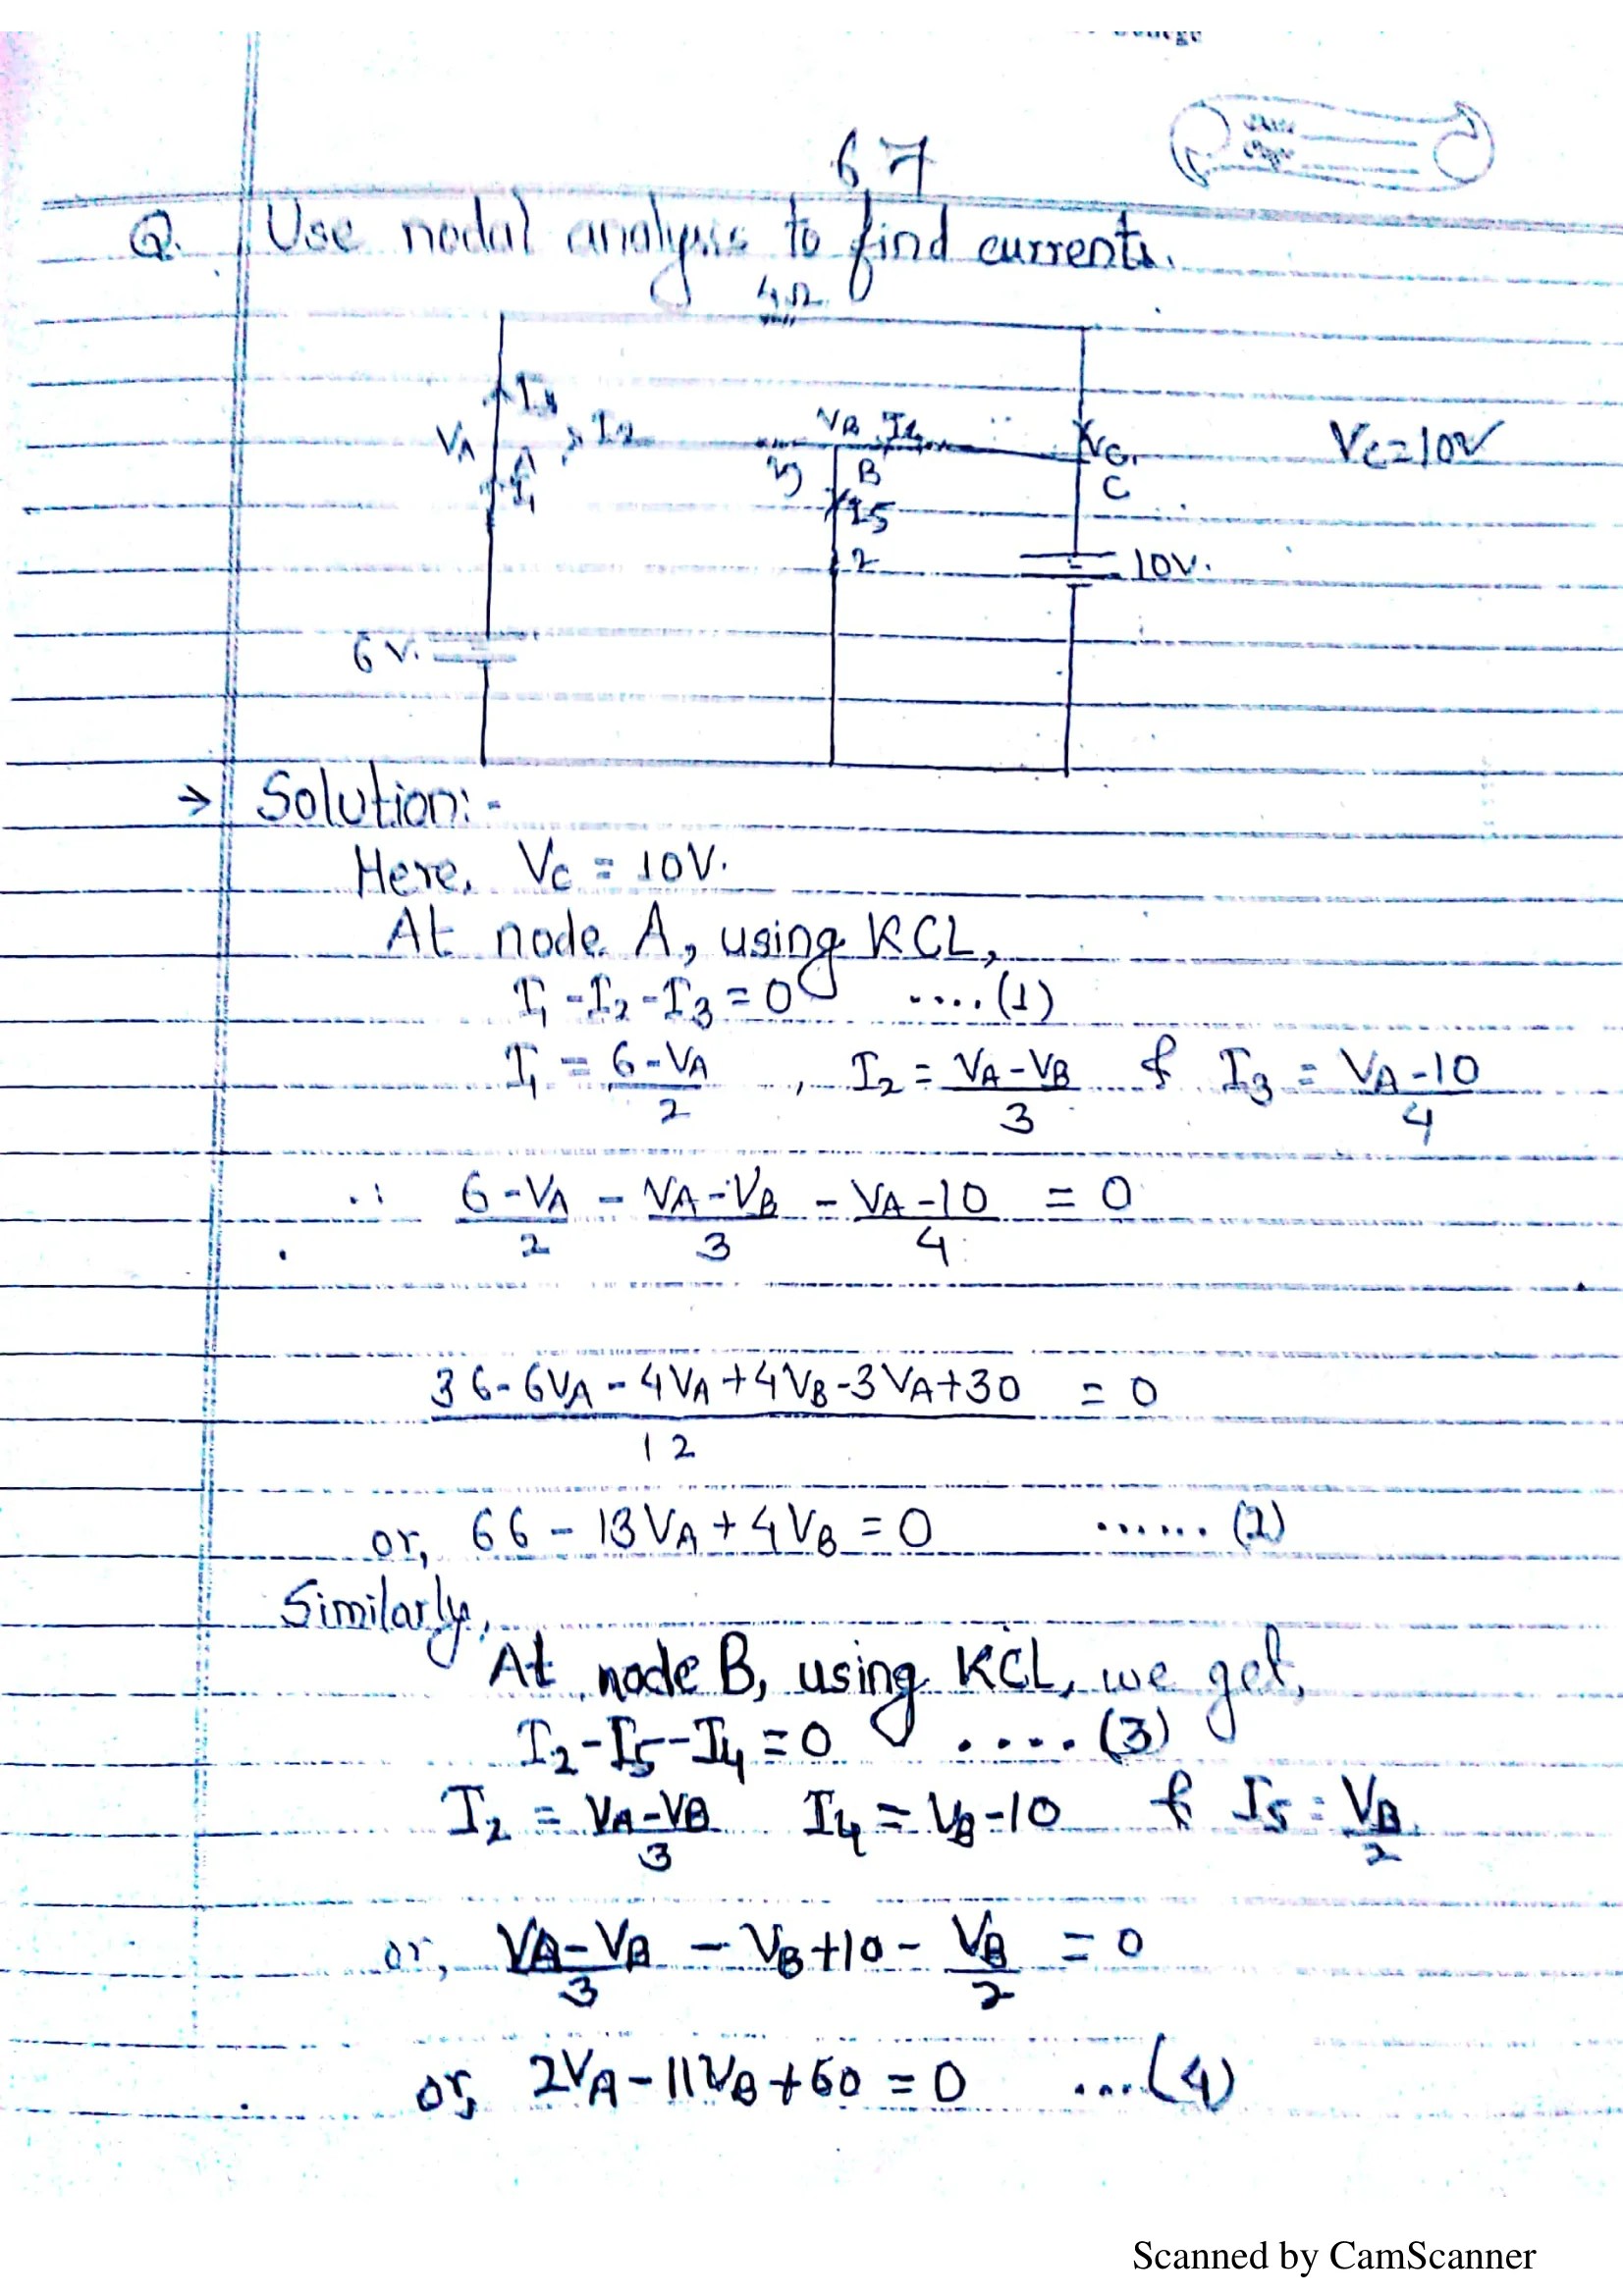 67
Q. Use nodal analysis to find currents.
4Ω
VA I3 I2 VB I4 VC. VC=10V
A I1 3 B C
I5
2 10V.
6V.
→ Solution:-
Here, VC = 10V.
At node A, using KCL,
I1 - I2 - I3 = 0 ....(1)
I1 = 6-VA/2, I2 = VA-VB/3 & I3 = VA-10/4
∴ 6-VA/2 - VA-VB/3 - VA-10/4 = 0
36-6VA-4VA+4VB-3VA+30/12 = 0
or, 66 - 13VA + 4VB = 0 ...... (2)
Similarly,
At node B, using KCL, we get,
I2-I5-I4 = 0 .... (3)
I2 = VA-VB/3 I4 = VB-10 & I5 = VB/2
or, VA-VB/3 - VB+10 - VB/2 = 0
or, 2VA-11VB+60 = 0 ...(4)
Scanned by CamScanner